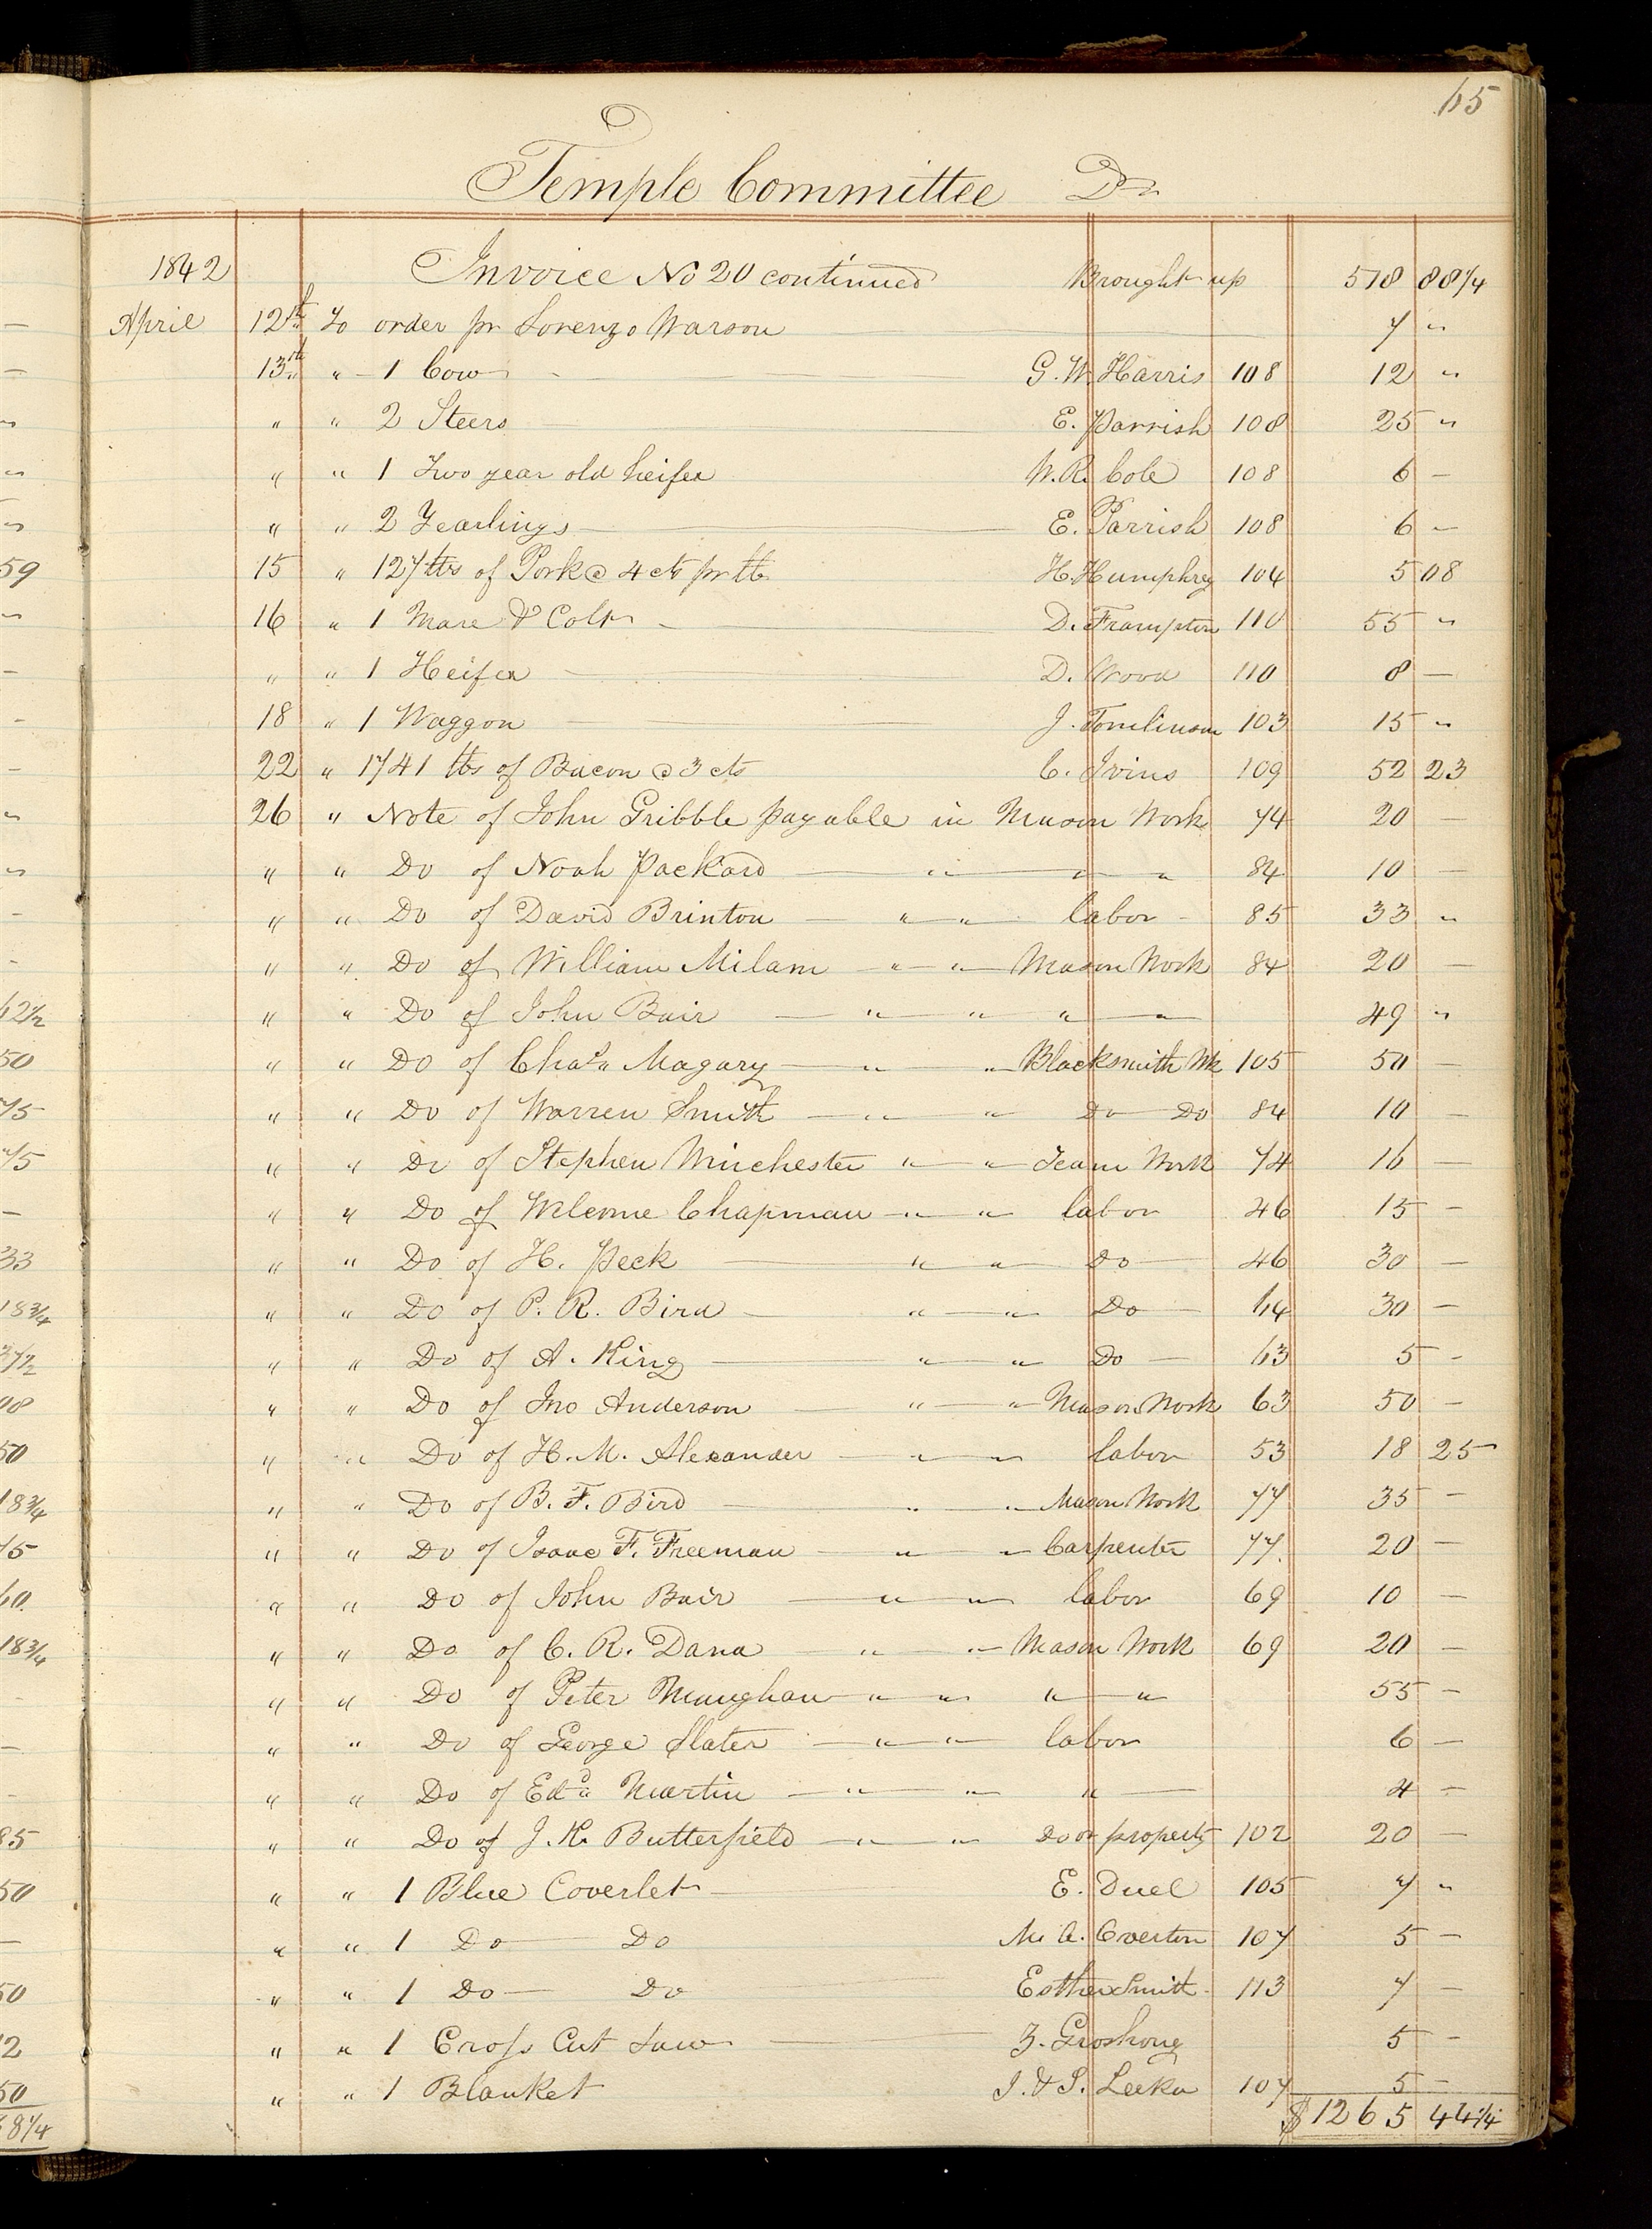 65
Temple Committee Dr
1842 Invoice No 20 continued Brought up 518 88 1/4
April 12th To order pr Lorenzo Warson 7 "
13th " 1 Cow G. W. Harris 108 12 "
" " 2 Steers E. Parrish 108 25 "
" " 1 Two year old heifer W. R. Cole 108 6 —
" " 2 Yearlings E. Parrish 108 6 —
15 " 127 lbs of Pork @ 4 cts pr lb H. Humphrey 104 5 08
16 " 1 Mare & Colt D. Frampton 110 55 "
" " 1 Heifer D. Wood 110 8 —
18 " 1 Waggon J. Tomlinson 103 15 "
22 " 1741 lbs of Bacon @ 3 cts C. Ivins 109 52 23
26 " Note of John Gribble payable in Mason Work 74 20 —
" " Do of Noah Packard " " " 84 10 —
" " Do of David Brinton " " labor 85 33 "
" " Do of William Milam " " Mason Work 84 20 —
" " Do of John Bair " " " " 49 "
" " Do of Chas. Magary " " Blacksmith Wk 105 50 —
" " Do of Warren Smith " " Do Do 84 10 —
" " Do of Stephen Winchester " " Team Work 74 16 —
" " Do of Welcome Chapman " " labor 46 15 —
" " Do of H. Peck " " Do 46 30 —
" " Do of P. R. Bird " " Do 64 30 —
" " Do of A. King " " Do 63 5 —
" " Do of Jno Anderson " " Mason Work 63 50 —
" " Do of H. M. Alexander " " labor 53 18 25
" " Do of B. F. Bird " " Mason Work 77 35 —
" " Do of Isaac F. Freeman " " Carpenter 77. 20 —
" " Do of John Bair " " labor 69 10 —
" " Do of C. R. Dana " " Mason Work 69 20 —
" " Do of Peter Maughan " " " " 55 —
" " Do of George Slater " " labor 6 —
" " Do of Edd Martin " " " 4 —
" " Do of J. K. Butterfield " " Do or property 102 20 —
" " 1 Blue Coverlet E. Duel 105 7 "
" " 1 Do Do M. A. Overton 107 5 —
" " 1 Do Do Esther Smith 113 7 —
" " 1 Cross Cut Saw Z. Groshong 5 —
" " 1 Blanket J. & S. Leeka 107 5 —
$1265 44 1/4